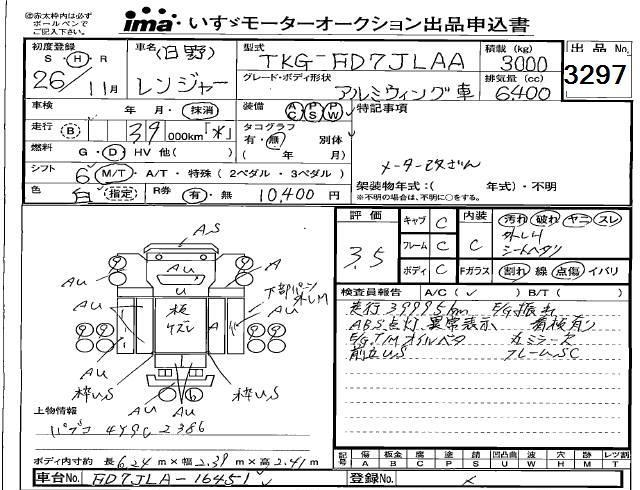 ㊟赤太枠内は必ず
ボールペンで
ご記入下さい。
ima いすゞモーターオークション出品申込書
初度登録
S・H・R
26/11月
車名(日野)
レンジャー
型式
TKG-FD7JLAA
グレード・ボディ形状
アルミウィング車
積載(kg)
3000
排気量(cc)
6400
出品No.
3297
車検 年 月・抹消
装備 AC PS PW
特記事項
走行 B 39 000km「水」
タコグラフ
有・無 別体
( 年 月)
メーター改ざん
燃料 G・D・HV 他( )
シフト 6 M/T・A/T・特殊(2ペダル・3ペダル)
架装物年式:( 年式)・不明
※不明の場合は、不明に○をする。
色 白 指定 R券 有・無 10,400円
評価
3.5
キャブ C
フレーム C
ボディ C
内装 C
Fガラス
汚れ 破れ ヤニ スレ
外しM
シートヘタリ
割れ 線 点傷 イバリ
検査員報告 A/C(✓) B/T( )
走行399951km
ABS点灯、異常表示
E/G、T/Mオイルベタ
前立US フレームSC
AS
AU
A
U
板
キズ
下部パーツ
外しM
枠US
枠US
上物情報
パブコ 4Y9C 2386
ボディ内寸約 長6.24m×幅2.39m×高2.41m
記号 傷A 板金B 腐C 塗P 請S 凹U 凸凹曲U 波W 穴H 跡M 錆T レツ割
車台No. FD7JLA-16451
登録No. ×